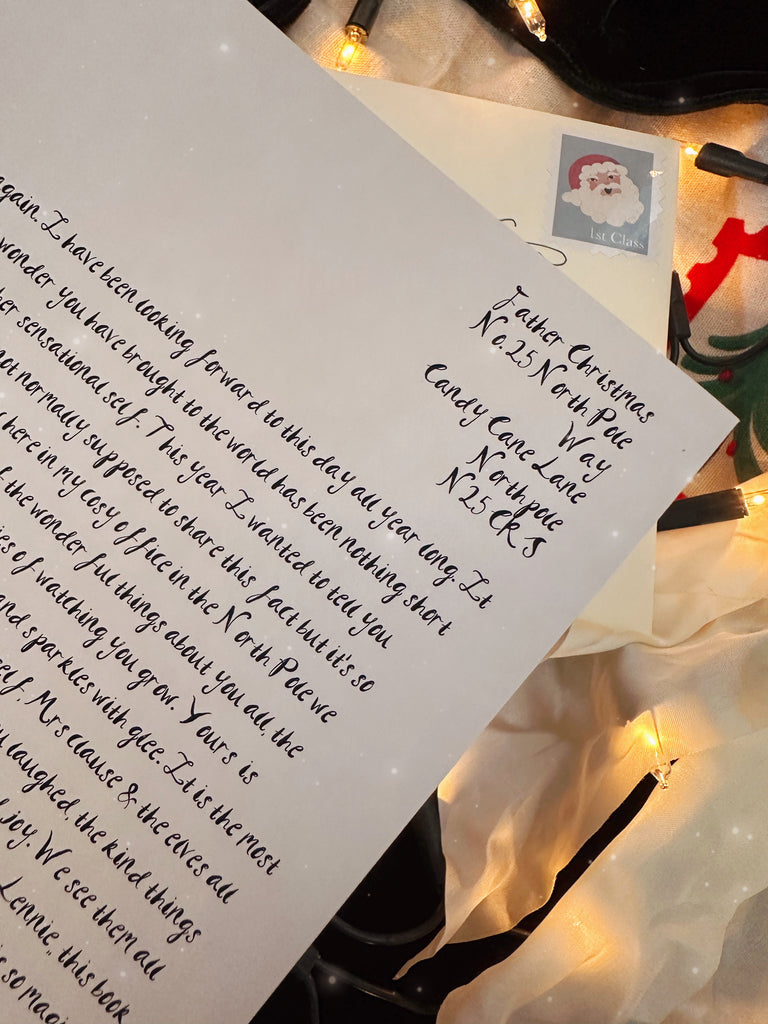 1st Class
Father Christmas
No. 25 North Pole
Way
Candy Cane Lane
Northpole
N25
again. I have been looking forward to this day all year long. It
wonder you have brought to the world has been nothing short
sensational self. This year I wanted to tell you
not normally supposed to share this fact but it's so
here in my cosy office in the North Pole we
the wonderful things about you all, the
of watching you grow. Yours is
and sparkles with glee. It is the most
Mrs clause & the elves all
laughed, the kind things
joy. We see them all
Lennie, this book
so